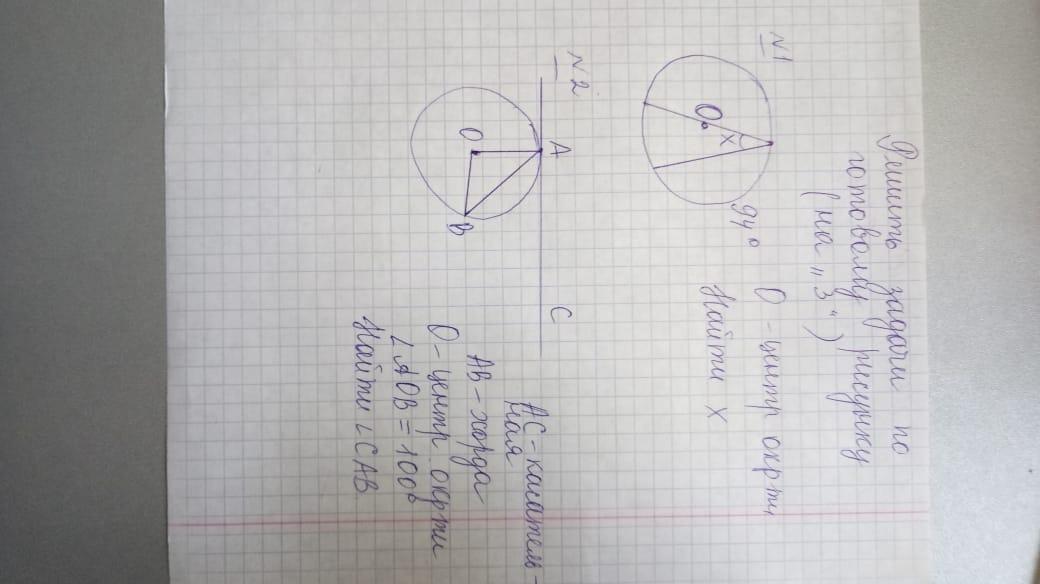 Решить задачи по
готовому рисунку
(на „3“)
№1
O
x
94°
O - центр окр-ти
Найти x
№2
A
O
B
C
AC - касатель-
ная
AB - хорда
O - центр окр-ти
∠AOB = 100°
Найти ∠CAB